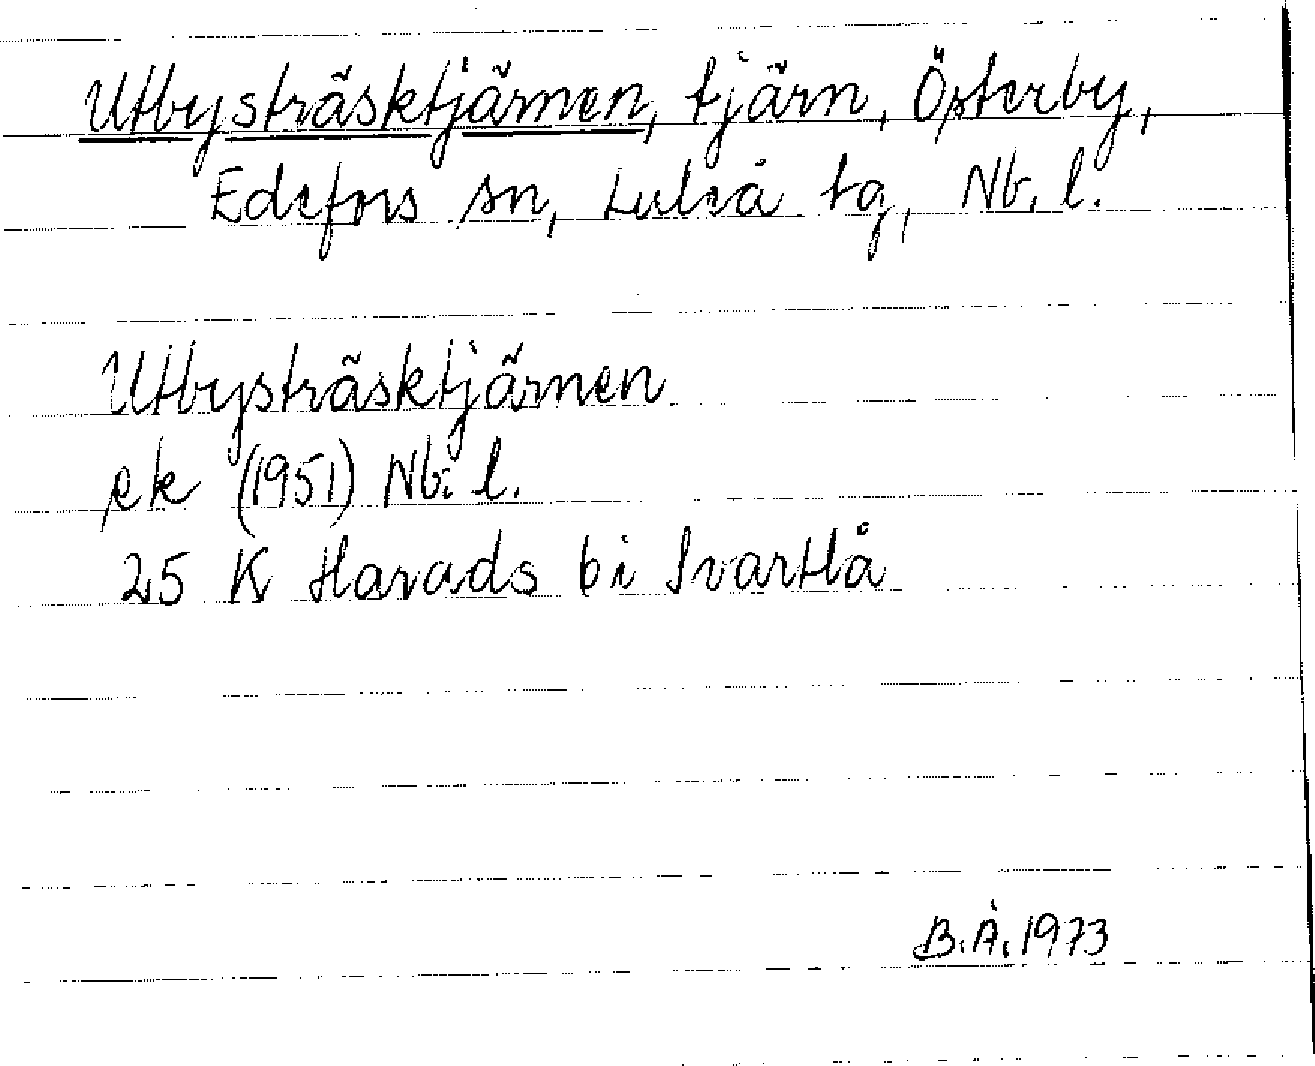 Utbysträsktjärnen, tjärn, Österby,
Edefors sn, Luleå tg, Nb. l.
Utbysträsktjärnen
ek (1951) Nb. l.
25 K Harads bi Svartlå
B.Å. 1973